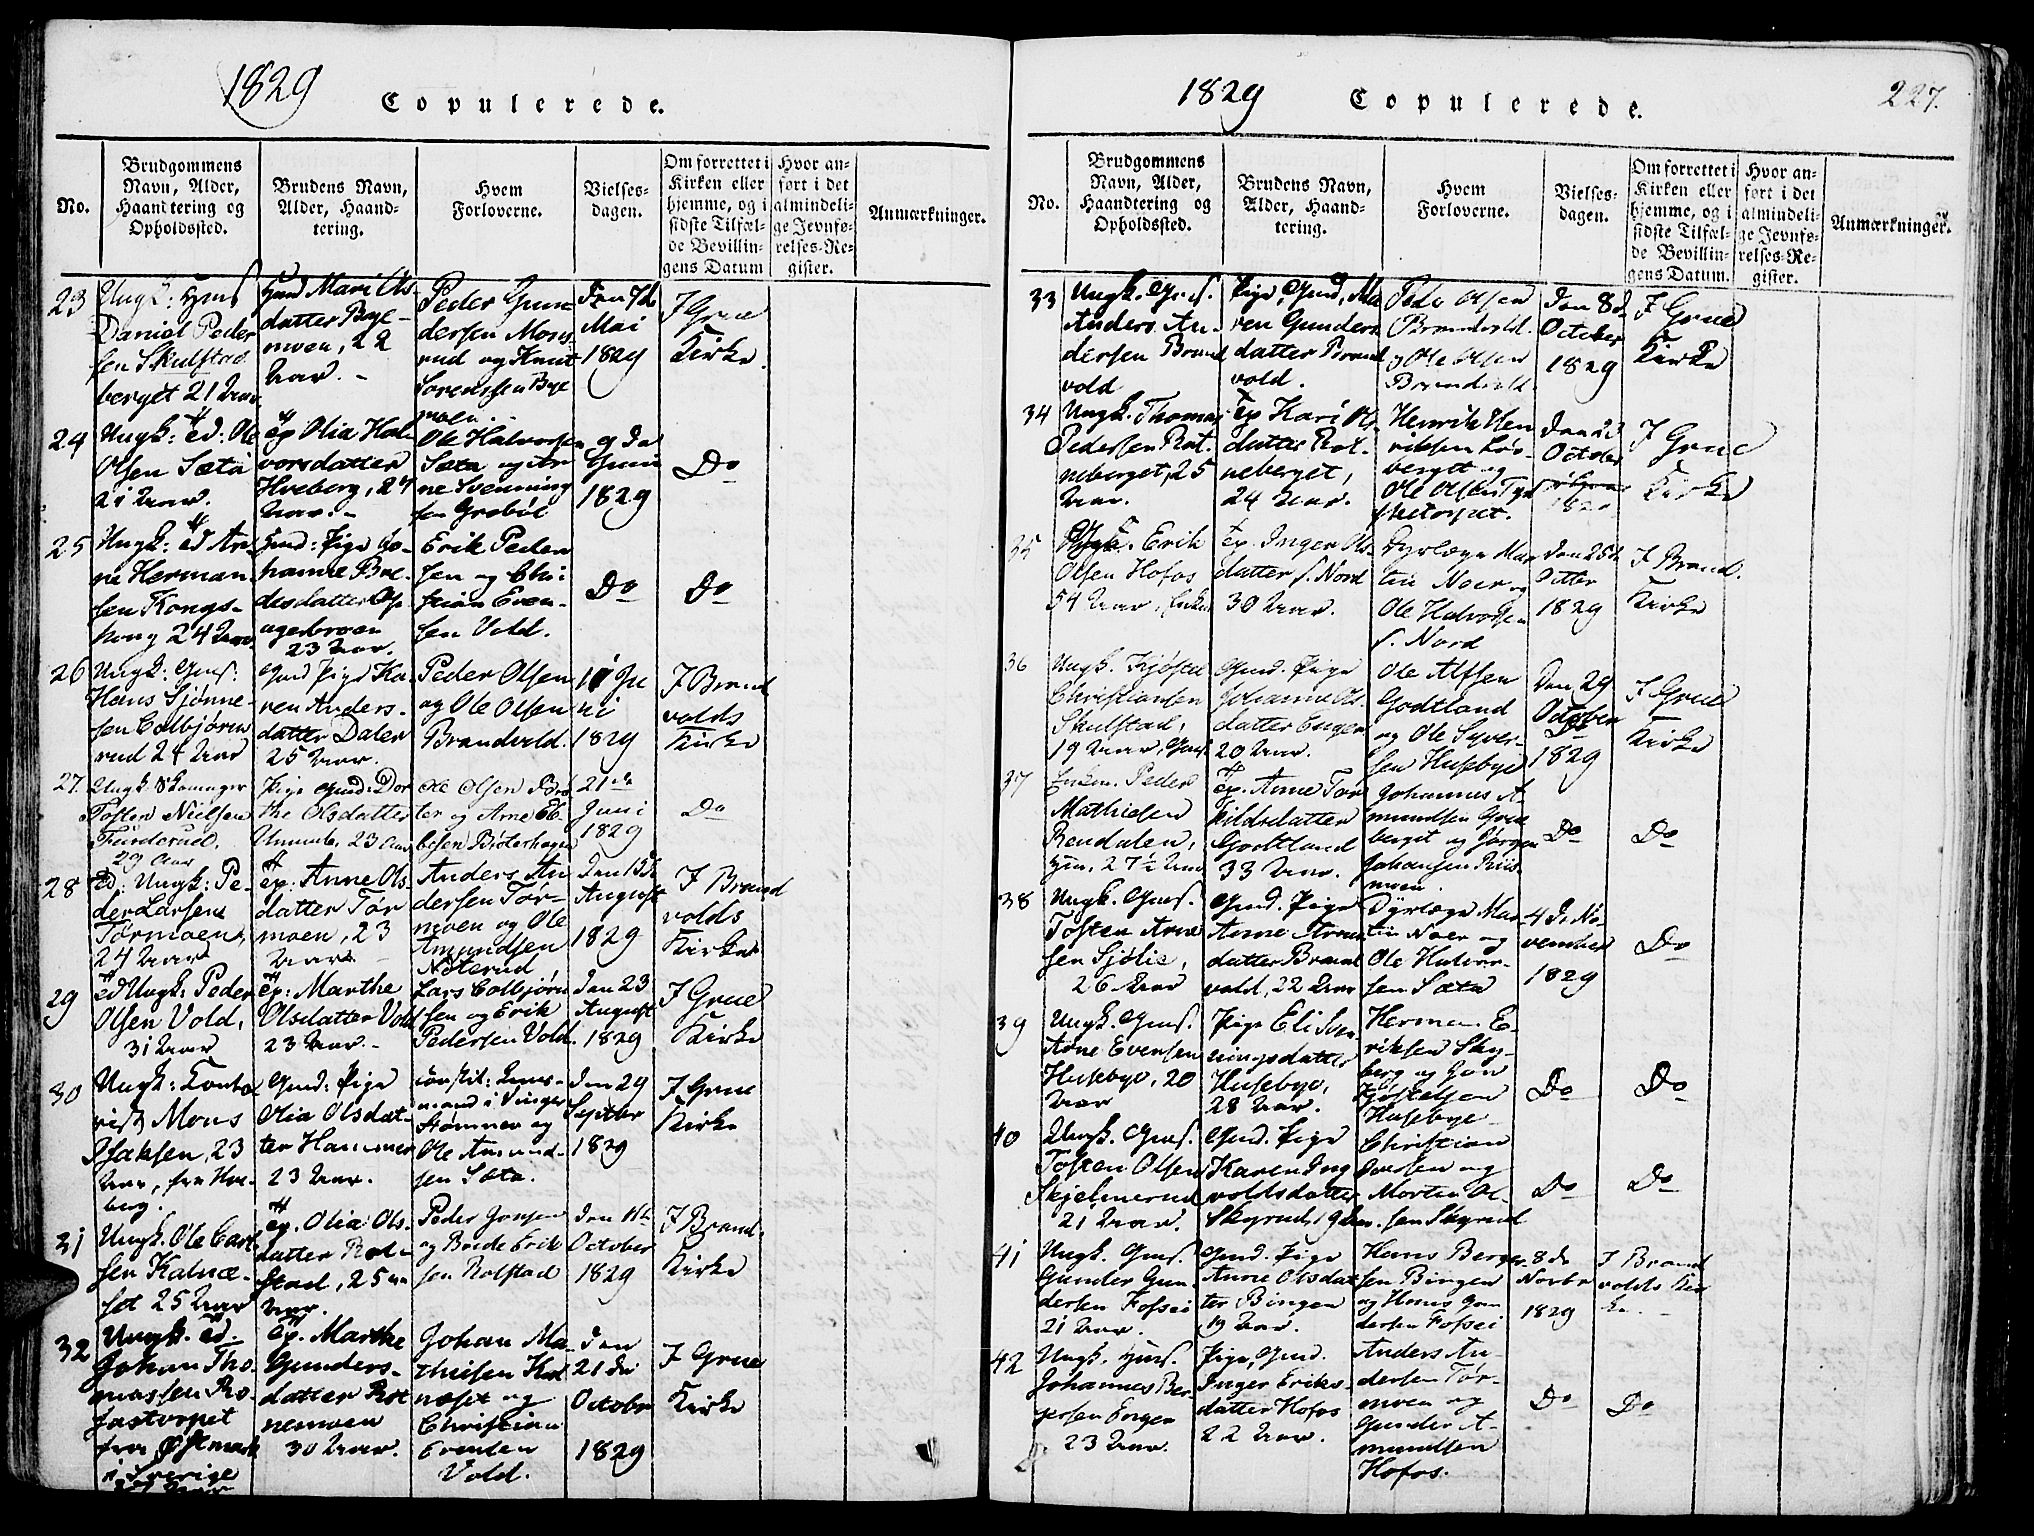 1829 Copulerede.
No.
Brudgommens
Navn, Alder,
Haandtering og
Opholdssted.
Brudens Navn,
Alder, Haand-
tering.
Hvem
Forloverne.
Vielses-
dagen.
Om forrettet i
Kirken eller
hjemme, og i
sidste Tilfæl-
de Bevillin-
gens Datum
Hvor an-
ført i det
almindeli-
ge Jevnfø-
relses-Re-
gister.
Anmærkninger.
23
Ungk:
Daniel Peder
sen Skulstad
berget 21 Aar
Mari Ols-
datter Bye-
moen, 22
Aar. -
Peder Gun-
dersen Mons
rud og Knut
Sørenssen Bye
moen
Den 7de
Mai
1829
I Grue
Kirke.
24
Ungk: ed: Ole
Olsen Sæta
21 Aar.
ep Olia Hal
vorsdatter
Hveberg, 24
Aar. -
Ole Halvorsen
Sæta og Ar
ne Svenning
sen Grøbøl
Juni
1829
Do
25
Ungk: ed Ar
ne Herman
sen Kongs-
houg 24 Aar
Pige Jo-
hanne Bre-
desdatter Op
agerbroen
23 Aar.
Erik Peder
sen og Chri
stian Even-
sen Vold.
Do
Do
26
Ungk: Gmf:
Hans Sjønne-
sen Colbjørns
rud 24 Aar
Gmd Pige Ka-
ren Anders-
datter Daler
25 Aar.
Peder Olsen
og Ole Olsen
Brandvold.
11 Ju
ni
1829
I Brand
volds
Kirke
27.
Tosten Nielsen
Funderud.
29 Aar
Pige Gmd: Dor
the Olsdatter
23 Aar
Ole Olsen Brø
ter og Arne Eb-
besen Brøterhagen
21de
Juni
1829
Do
28
Ed: Ungk: Pe-
der Larsen
Tørmoen,
24 Aar
ep: Anne Ols-
datter Tør
moen, 23
Aar
Anders An
dersen Tør-
moen og Ole
Amundsen
Noterud
Den 15de
August
1829
I Brand
volds
Kirke
29
ed Ungk: Peder
Olsen Vold,
31 Aar
ep: Marthe
Olsdatter Vold
23 Aar. -
Lars Colbjørn
sen og Erik
Pedersen Vold.
Den 23
August
1829
I Grue
Kirke
30
Ungk: Conto
rist Mons
Isaksen, 23
Aar, fra Hve-
berg.
Gmd: Pige
Olia Olsdat-
ter Hammer
23 Aar.
Const: Lens-
mand i Vinger
Strømmer og
Ole Amund-
sen Sæta.
Den 29
Septbr
1829
I Grue
Kirke
31
Ungk. Ole Carl
sen Kalnæ-
set 25 Aar
ep. Olia Ols-
datter Rol-
stad, 25
Aar.
Peder Jonsen
og Brede Erik
sen Rolstad
Den 11te
October
1829
I Brand.
Kirke
32
Ungk. ed.
Johan Tho-
massen Ro-
jastorpet
fra Østmark
i Sverige
ep. Marthe
Gunders-
datter Rot
nemoen
30 Aar.
Johan Ma-
thisen Kal
næset og
Christian
Evensen
Vold.
Den
21 de
Octobr
1829
I Grue
Kirke
1829 Copulerede. 227.
No.
Brudgommens
Navn, Alder,
Haandtering og
Opholdssted.
Brudens Navn,
Alder, Haand-
tering.
Hvem
Forloverne.
Vielses-
dagen.
Om forrettet i
Kirken eller
hjemme, og i
sidste Tilfæl-
de Bevillin-
gens Datum.
Hvor an-
ført i det
almindeli-
ge Jevnfø-
relses-Re-
gister.
Anmærkninger.
33
Ungk. Gmf.
Anders An-
dersen Brand
vold
Pige, Gmd, Ma
ren Gunders
datter Brand
vold.
Peder Olsen
Brandvold.
og Ole Olsen
Brandvold.
Den 8de
October
1829
I Grue
Kirke
34
Ungk. Thomas
Pedersen Rot-
neberget, 25
Aar.
Ep Kari Ols
datter Rot-
neberget,
24 Aar.
Henrik Hen
riksen Løv-
berget og
Ole Olsen
October
I Grue
Kirke
35
Erik
Olsen Hofos
54 Aar, Enkem
ep. Inger Ols
datter s. Nord
30 Aar.
Dyrlæge Mar
tin Noer og
Ole Halvorsen
s. Nord
Den 25de
Octbr
1829
I Brand.
Kirke
36
Ungk. Kjøstel
Christiansen
Skulstad,
19 Aar, Gmf.
Gmd. Pige
Johanne Ols-
datter Engen
20 Aar.
Ole Alfsen
Godtland
og Ole Syver-
sen Husebye
Den 29
October
1829
I Grue
Kirke
37
Enkem. Peder
Mathiesen
Rendalen,
27½ Aar
Ep. Anne Tor
kildsdatter
Godtland
33 Aar.
Johannes A-
mundsen Grue
berget og Jørgen
Johansen Riis
moen.
Do
Do
38
Ungk. Gmf.
Tosten Arne
sen Sjølie,
26 Aar
Gmd. Pige
Anne Arnes
datter Brand
vold, 22 Aar
Dyrlæge Mar-
tin Noer og
Ole Halvor-
sen Sæta
4de No-
vember
1829
Do
39
Ungk. Gmf.
Arne Evensen
Husebye, 20
Aar
Pige Eli Sven
ningsdatter
Husebye,
28 Aar.
Herman E-
riksen Sky-
berg og Jon
Kjøstelsen
Husebye
Do
Do
40
Ungk. Gmf.
Tosten Olsen
Skjelmerud
21 Aar.
Gmd. Pige
Karen Ing
voldsdatter
Skyrud, 19 Aar.
Christian
Ovesen og
Morten Ol-
sen Skyrud
Do
Do
41
Ungk. Gmf.
Gunder Gun-
dersen Fossei
21 Aar.
Gmd. Pige
Anne Olsdat
ter Bingen
19 Aar.
Hans Berger-
sen Bingen
og Hans Gun
dersen Fossei
8de
Novbr
1829
I Brand
volds Kir
ke.
42
Ungk.
Johannes Ber-
gersen Engen
23 Aar.
Pige, Gmd.
Inger Eriks-
datter Hofos
22 Aar.
Anders An-
dersen Tør-
moen og
Gunder A-
mundsen
Hofos.
Do
Do